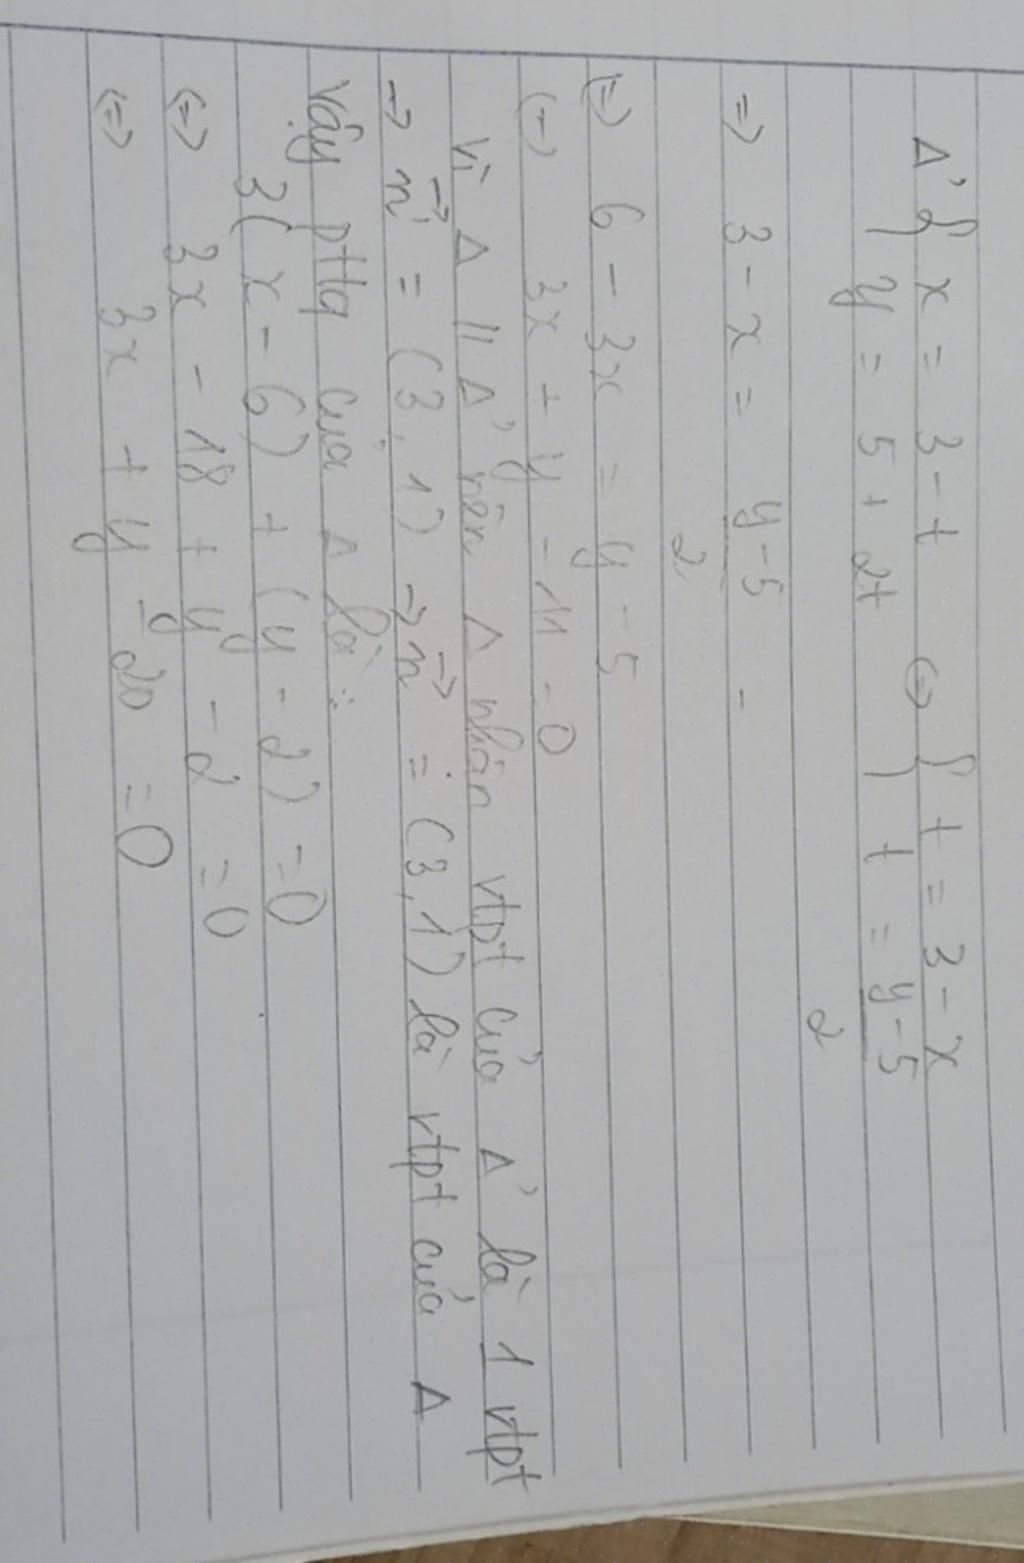 Δ' { x = 3 - t ⇔ { t = 3 - x
y = 5 + 2t } t = y - 5
2
=> 3 - x = y - 5 -
2
(=) 6 - 3x = y - 5
(-) 3x + y - 11 - 0
Vì Δ // Δ' nên Δ nhận vtpt của Δ' là 1 vtpt
→ n⃗' = (3, 1) → n⃗ = (3, 1) là vtpt của Δ
Vậy pttq của Δ là:
3(x - 6) + (y - 2) = 0
(=) 3x - 18 + y - 2 = 0
(=) 3x + y - 20 = 0